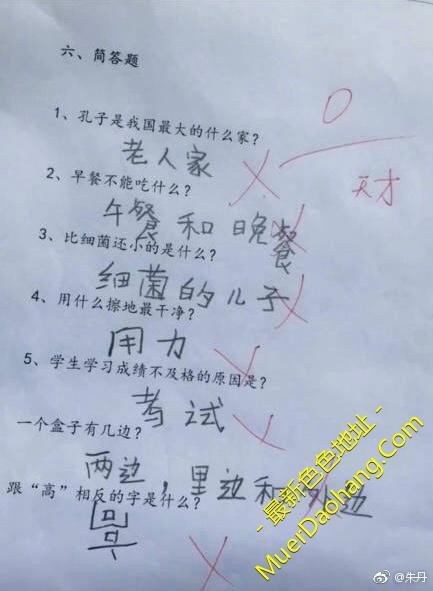 六、简答题
0
1、孔子是我国最大的什么家?
老人家
天才
2、早餐不能吃什么?
午餐和晚餐
3、比细菌还小的是什么?
细菌的儿子
4、用什么擦地最干净?
用力
5、学生学习成绩不及格的原因是?
考试
一个盒子有几边?
两边,里边和外边
跟“高”相反的字是什么?
- 最新色色地址 -
MuerDaohang.Com
@朱丹